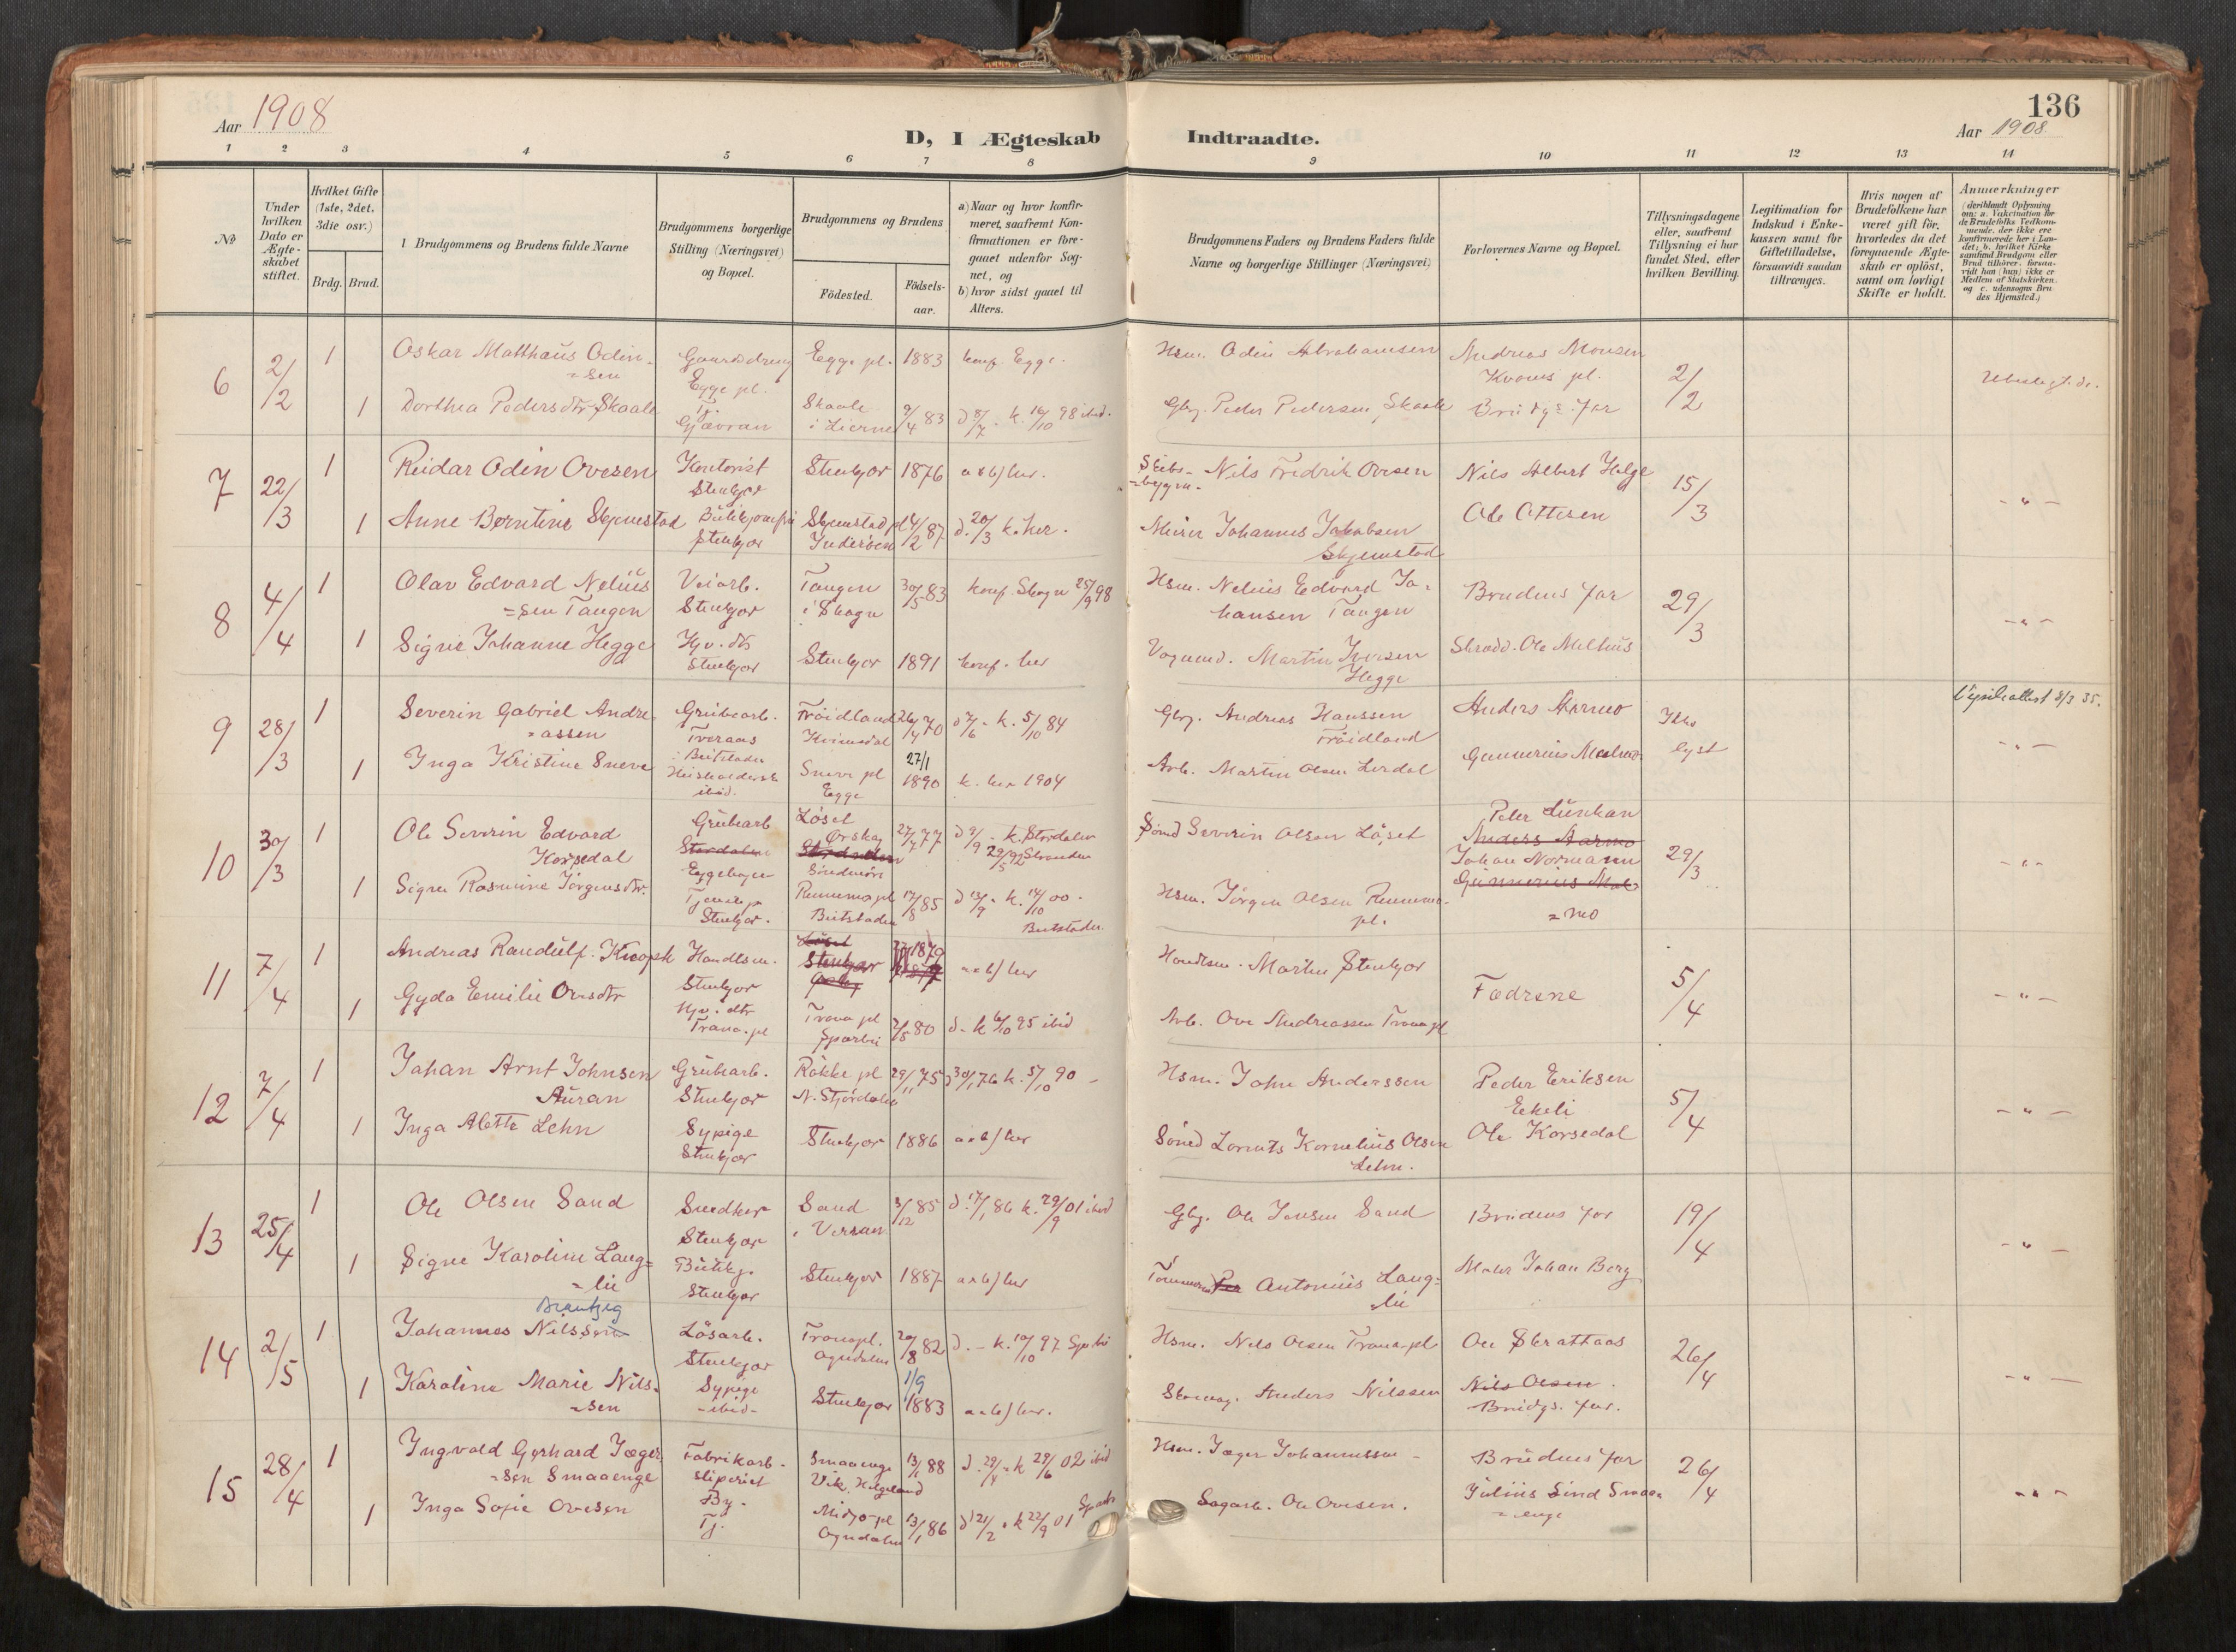 136
Aar 1908
D, I Ægteskab Indtraadte.
Aar 1908.
1 2 3 4 5 6 7 8 9 10 11 12 13 14
No
Under hvilken Dato er Ægte-skabet stiftet.
Hvilket Gifte (1ste, 2det, 3die osv.)
Brdg. Brud.
1 Brudgommens og Brudens fulde Navne
Brudgommens borgerlige Stilling (Næringsvei) og Bopæl.
Brudgommens og Brudens
Födested.
Födsels-aar.
a) Naar og hvor konfir-meret, saafremt Kon-firmationen er fore-gaaet udenfor Sog-net, og
b) hvor sidst gaaet til Alters.
Brudgommens Faders og Brudens Faders fulde Navne og borgerlige Stillinger (Næringsvei)
Forlovernes Navne og Bopæl.
Tillysningsdagene eller, saafremt Tillysning ei har fundet Sted, efter hvilken Bevilling.
Legitimation for Indskud i Enke-kassen samt for Giftetilladelse, forsaavidt saadan tiltrænges.
Hvis nogen af Brudefolkene har været gift för, hvorledes da det foregaaende Ægte-skab er oplöst, samt om lovligt Skifte er holdt.
Anmærkninger
(deriblandt Oplysning om: a. Vakcination for de Brudefolks Vedkom-mende, der ikke ere konfirmerede her i Lan-det; b. hvilket Kirke-samfund Brudgom eller Brud tilhörer, forsaa-vidt han (hun) ikke er Medlem af Statskirken, og c. udensogns Bru-des Hjemsted.)
6 2/2 1 Oskar Matthäus Odin-
=sen
Gaardsdreng
Egge pl.
Egge pl. 1883 konf. Egge.
Hsm. Odin Abrahamsen
Andreas Monsen
Kvams pl.
2/2
1 Dorthea Pedersdtr Skaale
Tj.
Gjævran
Skaale
i Lierne
9/4 83 d 8/7 - k. 16/10 98 ibid.
Gbr. Peder Pedersen Skaale
Brudgs. far
7 22/3 1 Reidar Odin Ovesen
Kontorist
Stenkjær
Stenkjær 1876 a & b) her.
Skibs-
=bygm.
Nils Fredrik Ovesen
Nils Albert Helge
15/3
- " -
1 Anne Berntine Skjemstad
Stenkjær
Skjemstad pl
Inderöen
14/2 87 d. 20/3 k. her.
Meier Johannes Jakobsen
Skjemstad
Ole Ottesen
8 4/4 1 Olav Edvard Neliüs
=sen Tangen
Veiarb.
Stenkjær
Tangen
i Skogn
30/5 83 konf. Skogn 25/9 98
Hsm. Nelius Edvard Jo-
hansen Tangen
Brudens far
29/3
- " -
1 Signe Johanne Hegge
Hjv. dtr
Stenkjær
Stenkjær 1891 konf. her
Vognmd. Martin Iversen
Hegge
Skrædd. Ole Melhüs
9 28/3 1 Severin Gabriel Andre-
=assen
Grübearb.
Tveraas
i Beitstaden
Fröidland
Kvinesdal
26/4 70 d 7/6 - k. 5/10 84
Gbr. Andreas Hanssen
Fröidland
Anders Aarmo
Ikke
lyst
- " -
1 Inga Kristine Sneve
ibid.
Sneve pl
Egge
27/1
1890 k. her 1904
Arb. Martin Olsen Lerdal
10 30/3 1 Ole Severin Edvard
Korsedal
Grübearb
Stordalen
Eggebogen
Löset
Ørskog
Söndmöre
27/7 77 d 9/9 - k. Stordalen
29/5 92 Stranden
Smed Severin Olsen Löset
Peter Lünkan
Anders Aarmo
Johan Normann
29/3
- " -
1 Signe Rasmine Jörgensdtr.
Stenkjær.
Beitstaden
17/8 85 d 13/9 - k. 14/10 00.
Beitstaden.
Hsm. Jörgen Olsen Remmo-
pl.
Günnerius Mal-
=mo
11 7/4 1 Andreas Randülf Knopsk
Handlsm.
Stenkjær
Stenkjær
1879 a & b) her
Handlsm. Martin Stenkjær
Fædrene
5/4
- " -
1 Gyda Emilie Ovesdtr
Hjv. dtr
Trana-pl
Trana pl
Sparbu
2/5 80 d - k 6/10 95 ibid
Arb. Ove Andreassen Trana pl
12 7/4 1 Johan Arnt Johnsen
Aüran
Grübearb.
Stenkjær
Rökke pl
N. Stjördalen
29/11 75 d 30/1 76 k. 5/10 90 -
Hsm. John Anderssen
Peder Eriksen
Ekeli
5/4
- " -
1 Inga Alette Lehn
Sypige
Stenkjær
Stenkjær 1886 a & b) her
Smed Lorents Kornelius Olsen
Lehn.
Ole Korsedal
13 25/4 1 Ole Olsen Sand
Snedker
Stenkjær
Sand
i Verran
3/12 85 d. 17/1 86 k. 29/9 01 ibid
Gbr. Ole Jensen Sand
Brudens far
19/4
- " -
1 Signe Karoline Lang=
=lie
Bütikj.
Stenkjær
Stenkjær 1887 a & b) her
Per Antonius Lang=
=lie
Maler Johan Berg
14 2/5 1 Johannes Nilssen
Brantzeg
Lösarb.
Stenkjær
Tranapl.
Ogndalen
20/8 82 d. - k. 10/10 97 Sparbu
Hsm. Nils Olsen Trana-pl
Ole Skrattaas
26/4
- " -
1 Karoline Marie Nils-
=sen
Sypige
-ibid-
Stenkjær
1/9
1883 a & b) her.
Skomag. Anders Nilssen
Nils Olsen.
Brudgs. far.
15 28/4 1 Ingvald Gerhard Jæger
=sen Smaaenge
Fabrikarb-
sliperiet
Smaaenge
Vik, Helgeland
13/1 88 d. 29/4 - k 29/6 02 ibid
Hsm. Jæger Johannessen -
Brudens far
26/4
- " -
1 Inga Sofie Ovesen
By.
Tj.
Midjo-pl
Ogndalen
13/1 86 d 21/2 - k 22/9 01 Sparbu
Sagarb. Ole Ovesen.
Julius Lind Smaa-
=enge